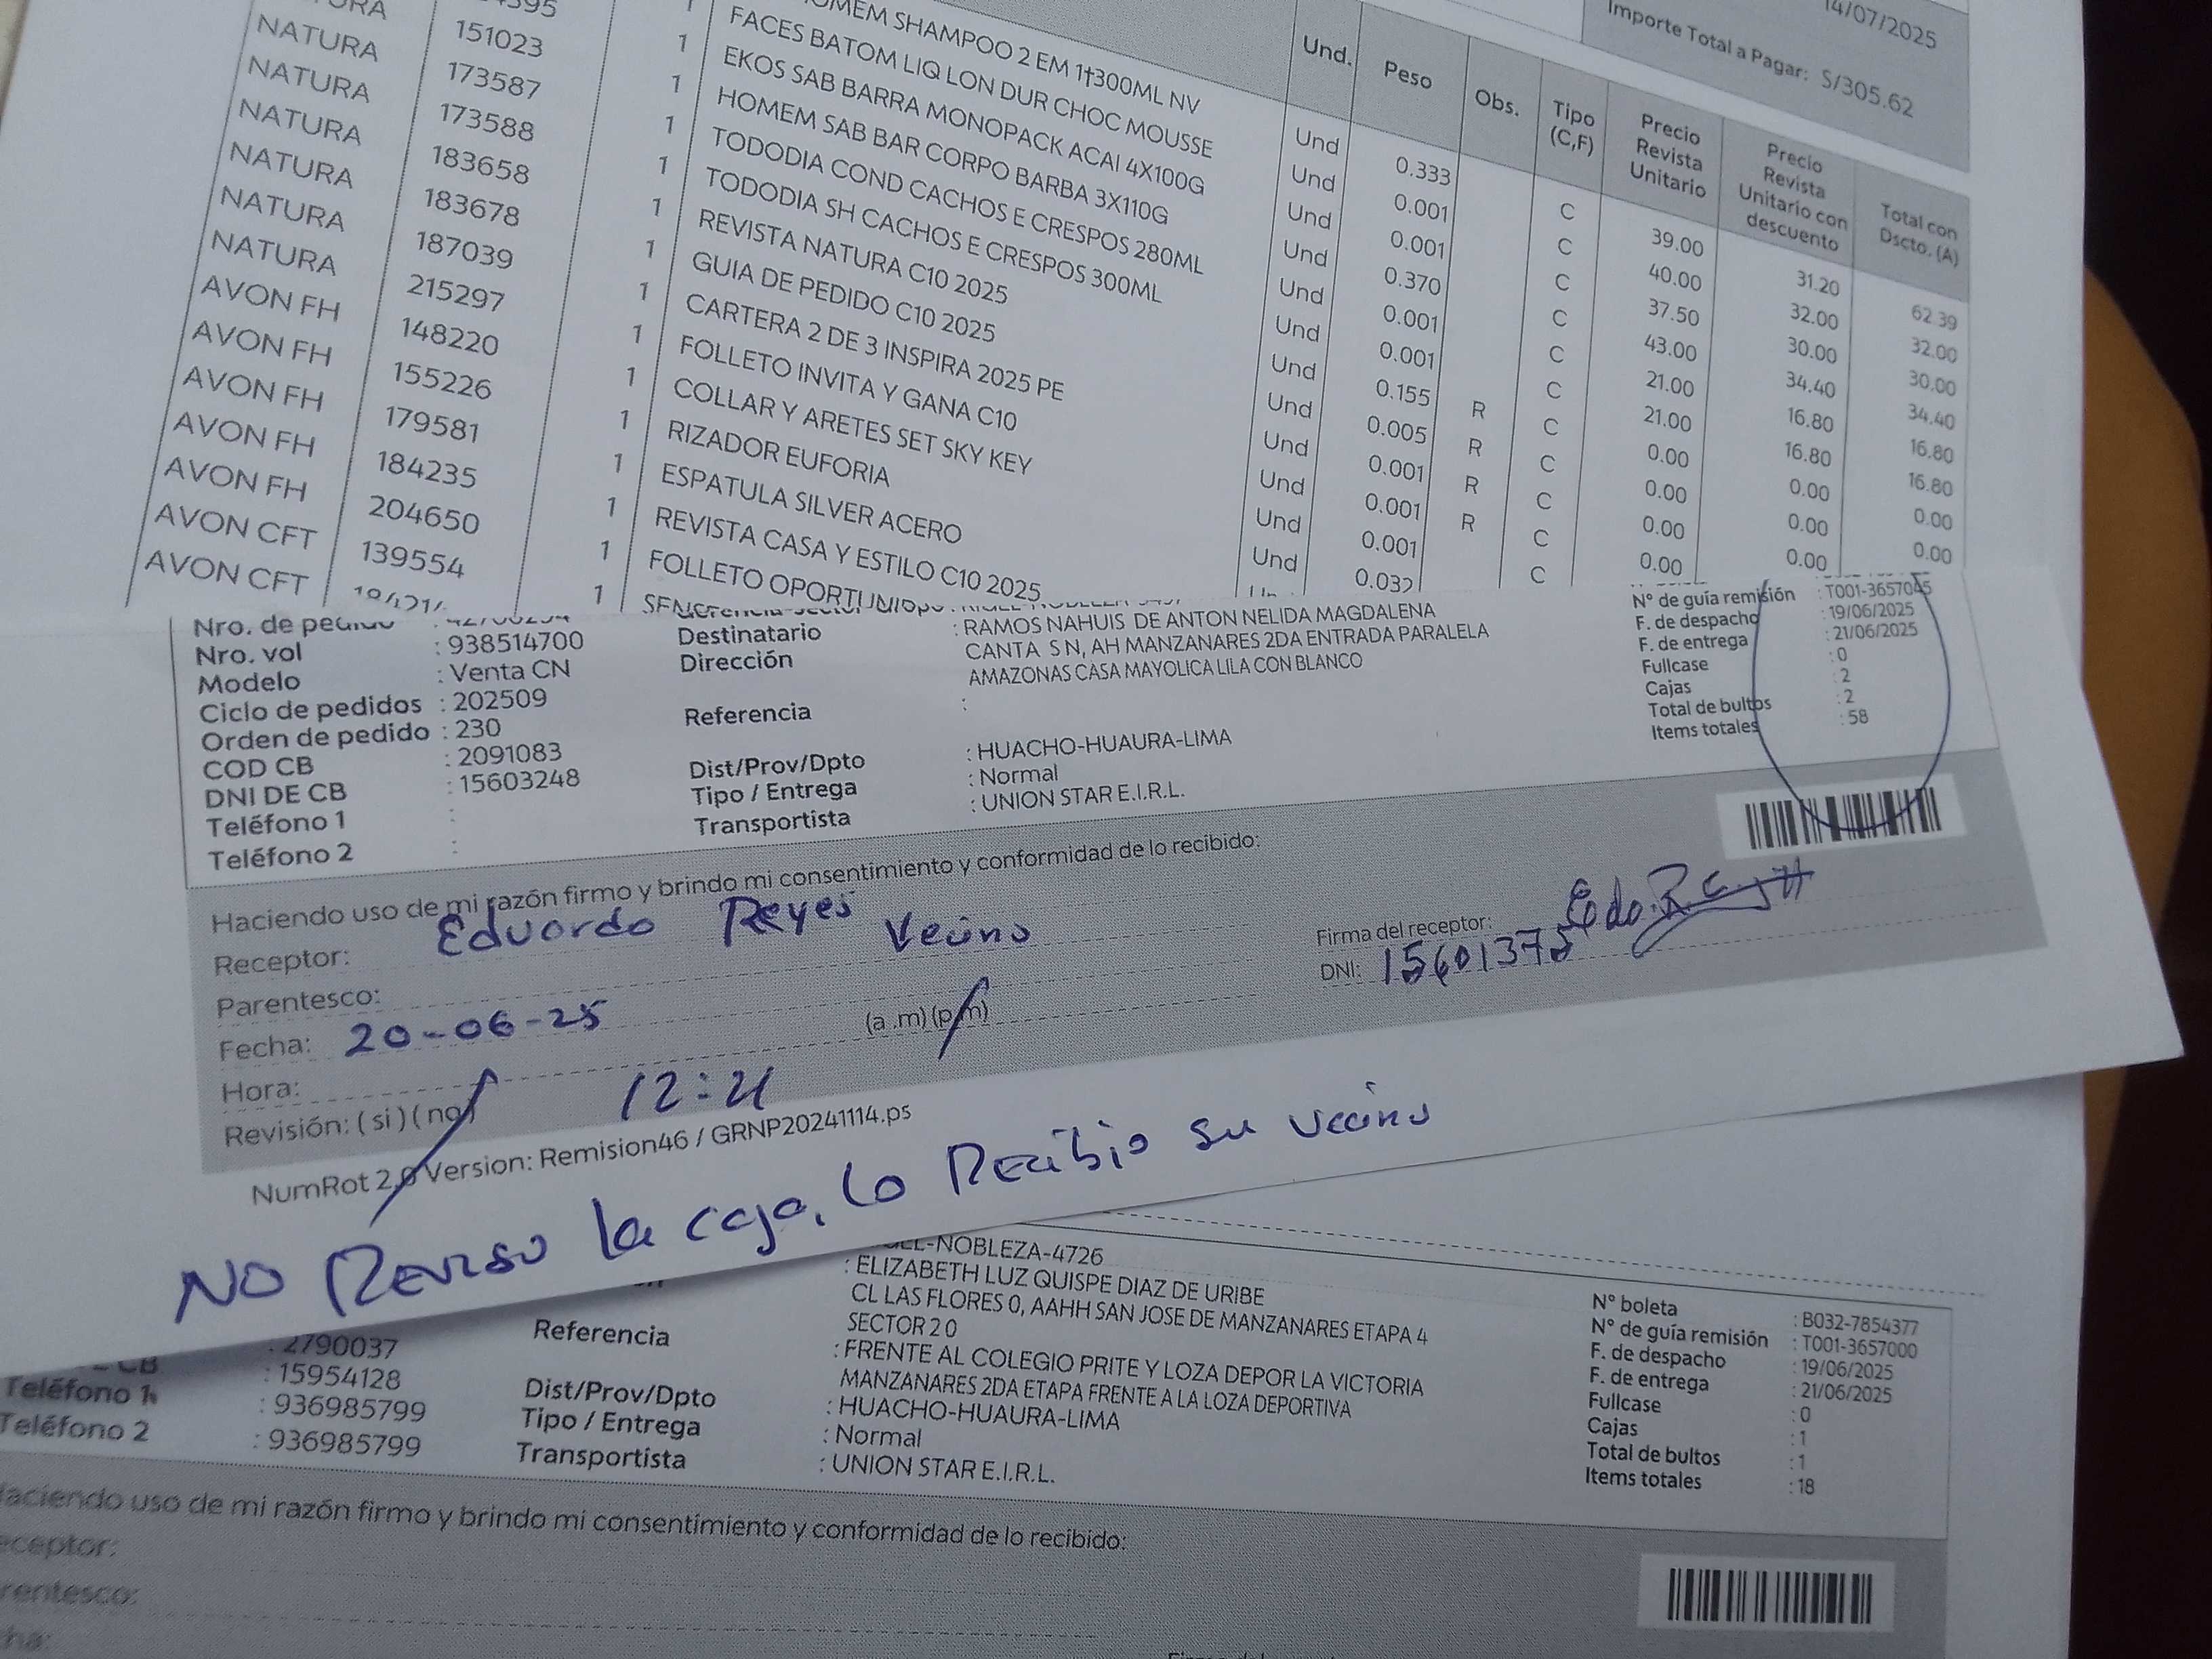 14/07/2025
Importe Total a Pagar: S/305.62
Und. Peso Obs. Tipo (C,F) Precio Revista Unitario Precio Revista Unitario con descuento Total con Dscto. (A)
SHAMPOO 2 EM 1†300ML NV
NATURA 151023 1 FACES BATOM LIQ LON DUR CHOC MOUSSE
NATURA 173587 1 EKOS SAB BARRA MONOPACK ACAI 4X100G
NATURA 173588 1 HOMEM SAB BAR CORPO BARBA 3X110G
NATURA 183658 1 TODODIA COND CACHOS E CRESPOS 280ML
NATURA 183678 1 TODODIA SH CACHOS E CRESPOS 300ML
NATURA 187039 1 REVISTA NATURA C10 2025
AVON FH 215297 1 GUIA DE PEDIDO C10 2025
AVON FH 148220 1 CARTERA 2 DE 3 INSPIRA 2025 PE
AVON FH 155226 1 FOLLETO INVITA Y GANA C10
AVON FH 179581 1 COLLAR Y ARETES SET SKY KEY
AVON FH 184235 1 RIZADOR EUFORIA
AVON CFT 204650 1 ESPATULA SILVER ACERO
AVON CFT 139554 1 REVISTA CASA Y ESTILO C10 2025
1 FOLLETO
Und 0.333 C 39.00 31.20 62.39
Und 0.001 C 40.00 32.00 32.00
Und 0.001 C 37.50 30.00 30.00
Und 0.370 C 43.00 34.40 34.40
Und 0.001 C 21.00 16.80 16.80
Und 0.001 C 21.00 16.80 16.80
Und 0.155 R C 0.00 0.00 0.00
Und 0.005 R C 0.00 0.00 0.00
Und 0.001 R C 0.00 0.00
Und 0.001 R C 0.00
Und 0.001
Und 0.032
Nro. de pedido
Nro. vol : 938514700
Modelo : Venta CN
Ciclo de pedidos : 202509
Orden de pedido : 230
COD CB : 2091083
DNI DE CB : 15603248
Teléfono 1 :
Teléfono 2 :
Destinatario : RAMOS NAHUIS DE ANTON NELIDA MAGDALENA
Dirección CANTA S N, AH MANZANARES 2DA ENTRADA PARALELA
AMAZONAS CASA MAYOLICA LILA CON BLANCO
Referencia :
Dist/Prov/Dpto : HUACHO-HUAURA-LIMA
Tipo / Entrega : Normal
Transportista : UNION STAR E.I.R.L.
N° de guía remisión : T001-3657045
F. de despacho : 19/06/2025
F. de entrega : 21/06/2025
Fullcase : 0
Cajas : 2
Total de bultos : 2
Items totales : 58
Haciendo uso de mi razón firmo y brindo mi consentimiento y conformidad de lo recibido:
Receptor: Eduardo Reyes
Parentesco: Vecino
Fecha: 20-06-25 (a .m) (p.m)
Hora: 12:21
Revisión: ( si ) ( no )
Firma del receptor:
DNI: 15601375
NumRot 2.0 Version: Remision46 / GRNP20241114.ps
NO Reviso la caja, lo Recibio su vecino
NOBLEZA-4726
: ELIZABETH LUZ QUISPE DIAZ DE URIBE
CL LAS FLORES 0, AAHH SAN JOSE DE MANZANARES ETAPA 4
SECTOR 2 0
Referencia : FRENTE AL COLEGIO PRITE Y LOZA DEPOR LA VICTORIA
MANZANARES 2DA ETAPA FRENTE A LA LOZA DEPORTIVA
Dist/Prov/Dpto : HUACHO-HUAURA-LIMA
Tipo / Entrega : Normal
Transportista : UNION STAR E.I.R.L.
: 2790037
CB : 15954128
Teléfono 1 : 936985799
Teléfono 2 : 936985799
N° boleta : B032-7854377
N° de guía remisión : T001-3657000
F. de despacho : 19/06/2025
F. de entrega : 21/06/2025
Fullcase : 0
Cajas : 1
Total de bultos : 1
Items totales : 18
Haciendo uso de mi razón firmo y brindo mi consentimiento y conformidad de lo recibido: